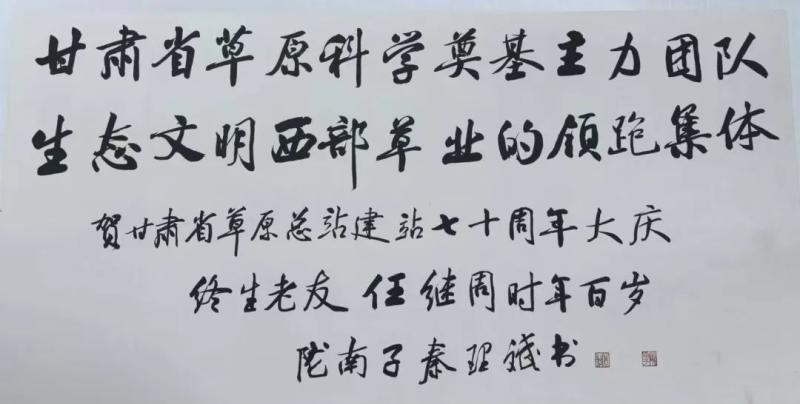 甘肃省草原科学奠基主力团队
生态文明西部草业的领跑集体
贺甘肃省草原总站建站七十周年大庆
终生老友 任继周时年百岁
陇南子秦理斌书